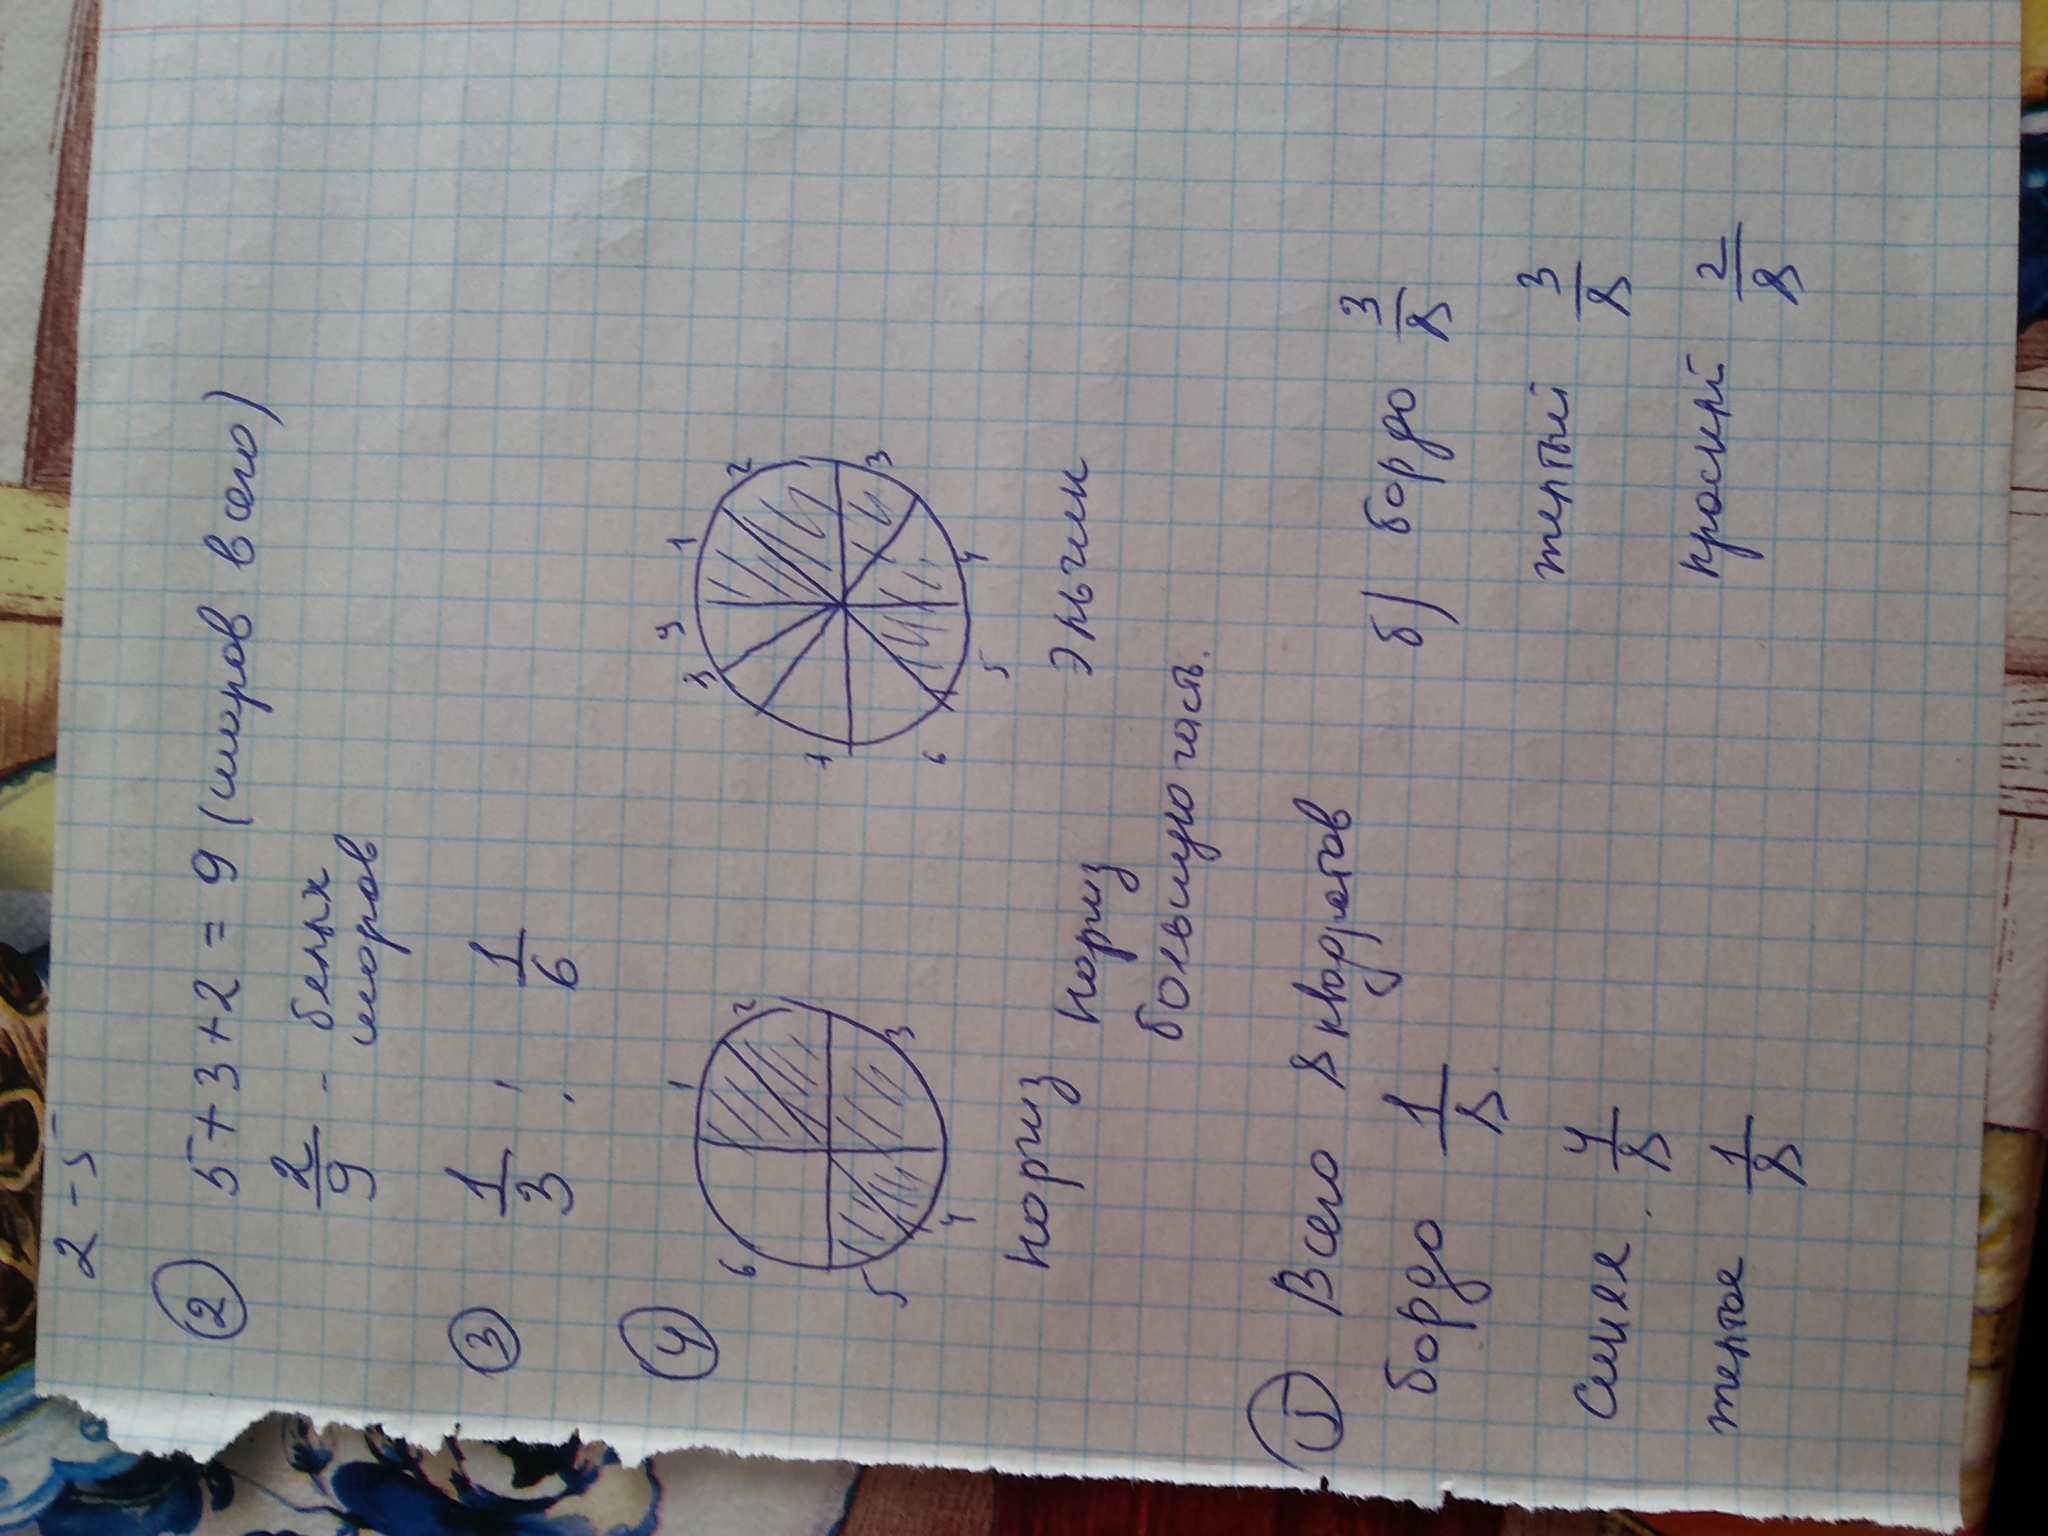 2 - 5
② 5 + 3 + 2 = 9 (шаров всего)
2/9 - белых шаров
③ 1/3 ; 1/6
④
1 2 3 4 5 6
1 2 3 4 5 6 7 3 9
Нориз Эльчин
Нориз большую часть.
① Всего 8 квадратов
бордо 1/8
Синяя 4/8
желтая 1/8
б) бордо 3/8
желтый 3/8
красный 2/8